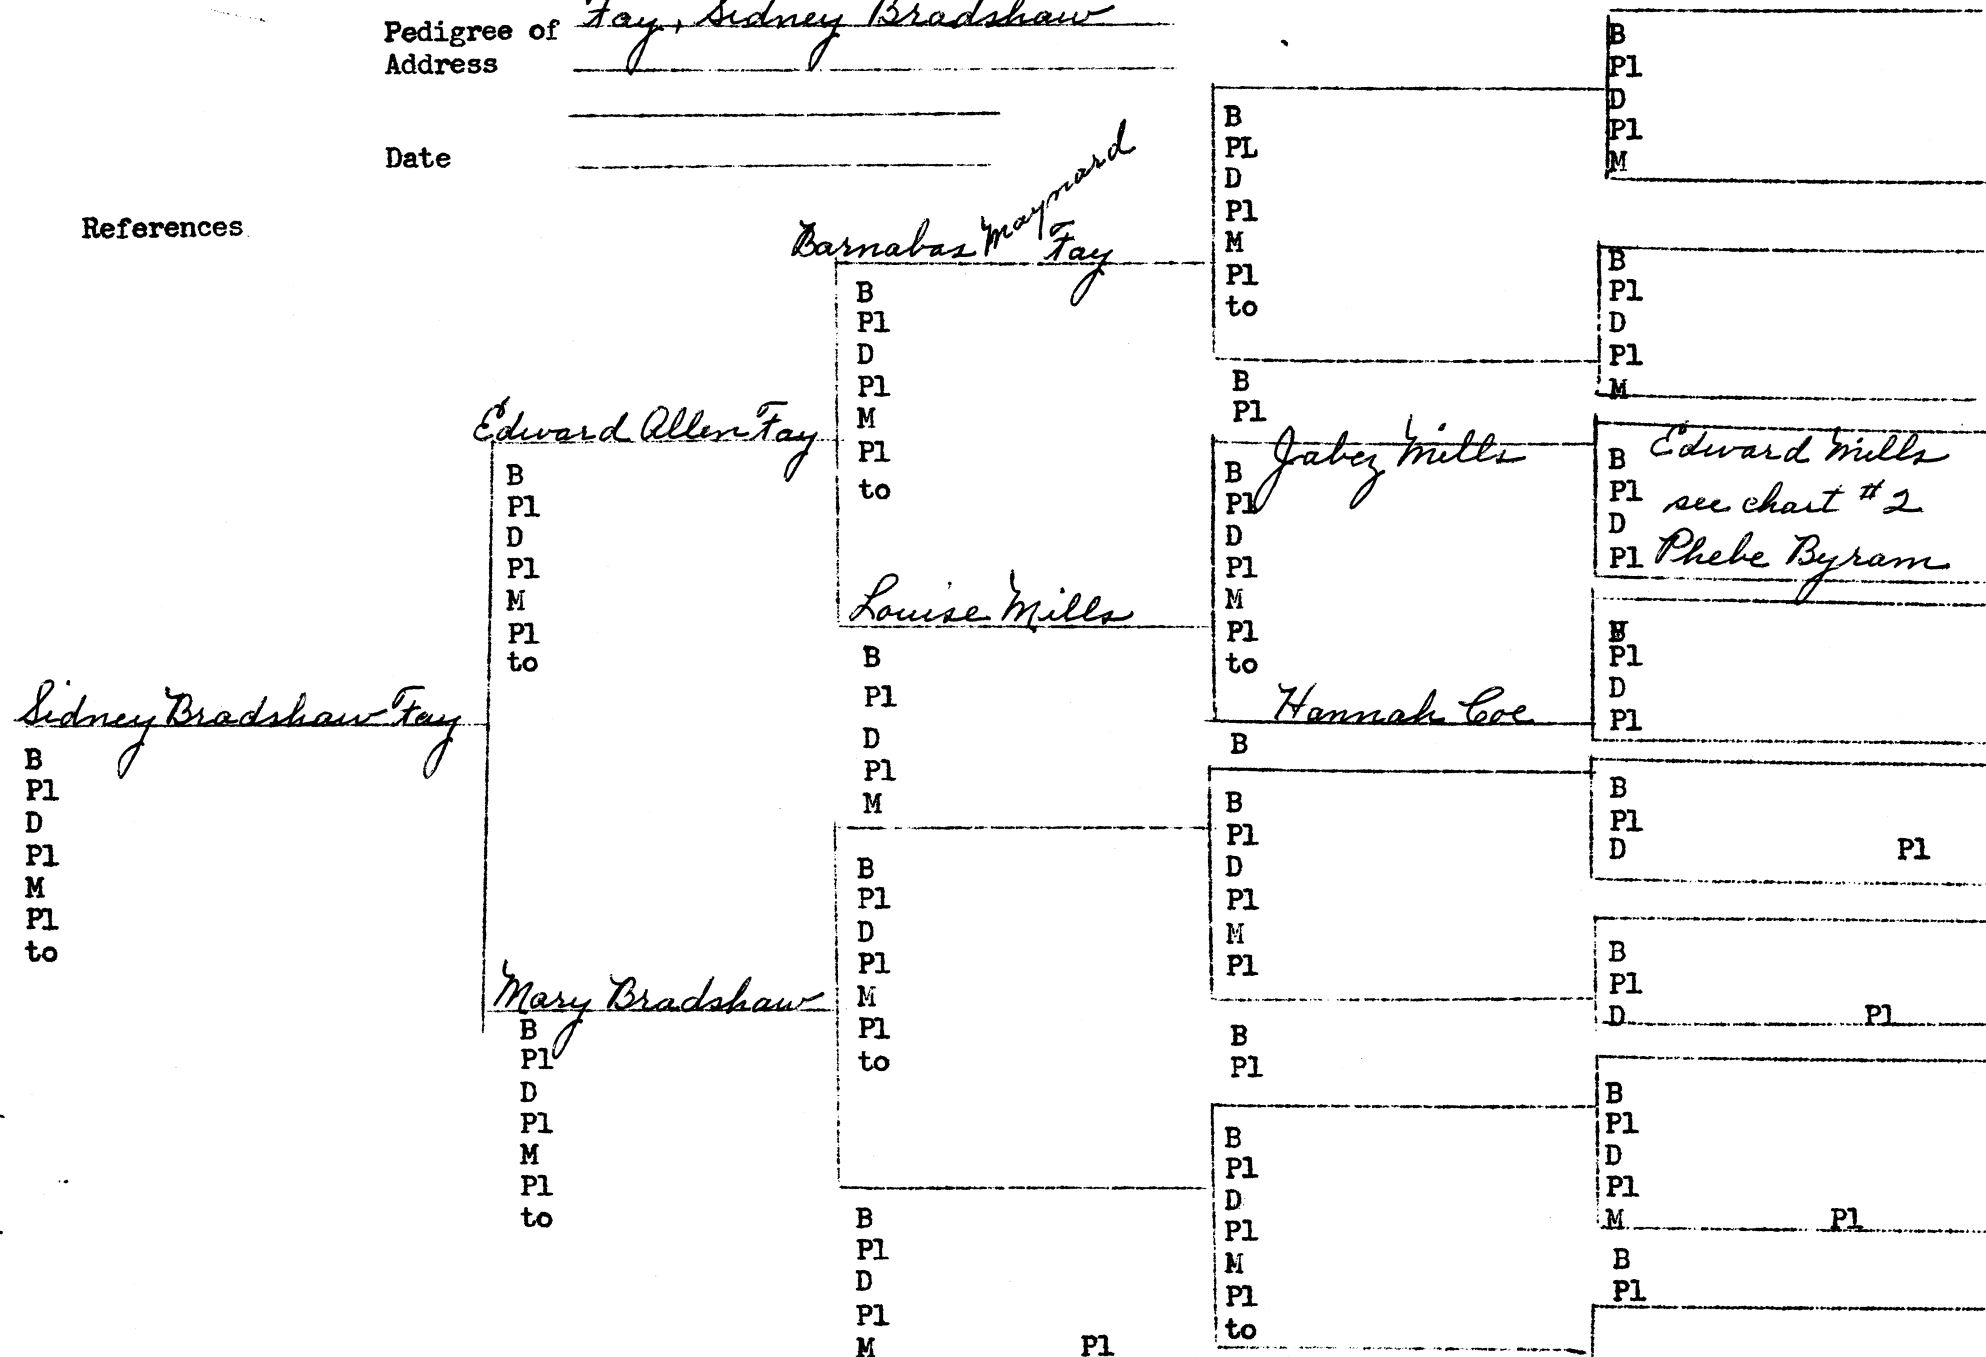 Pedigree of Fay, Sidney Bradshaw
Address
Date
References
Sidney Bradshaw Fay
B
Pl
D
Pl
M
Pl
to
Edward Allen Fay
B
Pl
D
Pl
M
Pl
to
Mary Bradshaw
B
Pl
D
Pl
M
Pl
to
Barnabas Maynard Fay
B
Pl
D
Pl
M
Pl
to
Louise Mills
B
Pl
D
Pl
M
B
Pl
D
Pl
M
Pl
to
B
Pl
D
Pl
M Pl
B
PL
D
Pl
M
Pl
to
B
Pl
Jabez Mills
B
Pl
D
Pl
M
Pl
to
Hannah Coe
B
B
Pl
D
Pl
M
Pl
B
Pl
B
Pl
D
Pl
M
Pl
to
B
Pl
D
Pl
M
B
Pl
D
Pl
M
B Edward Mills
Pl see chart #2
D
Pl Phebe Byram
B
Pl
D
Pl
B
Pl
D Pl
B
Pl
D Pl
B
Pl
D
Pl
M Pl
B
Pl